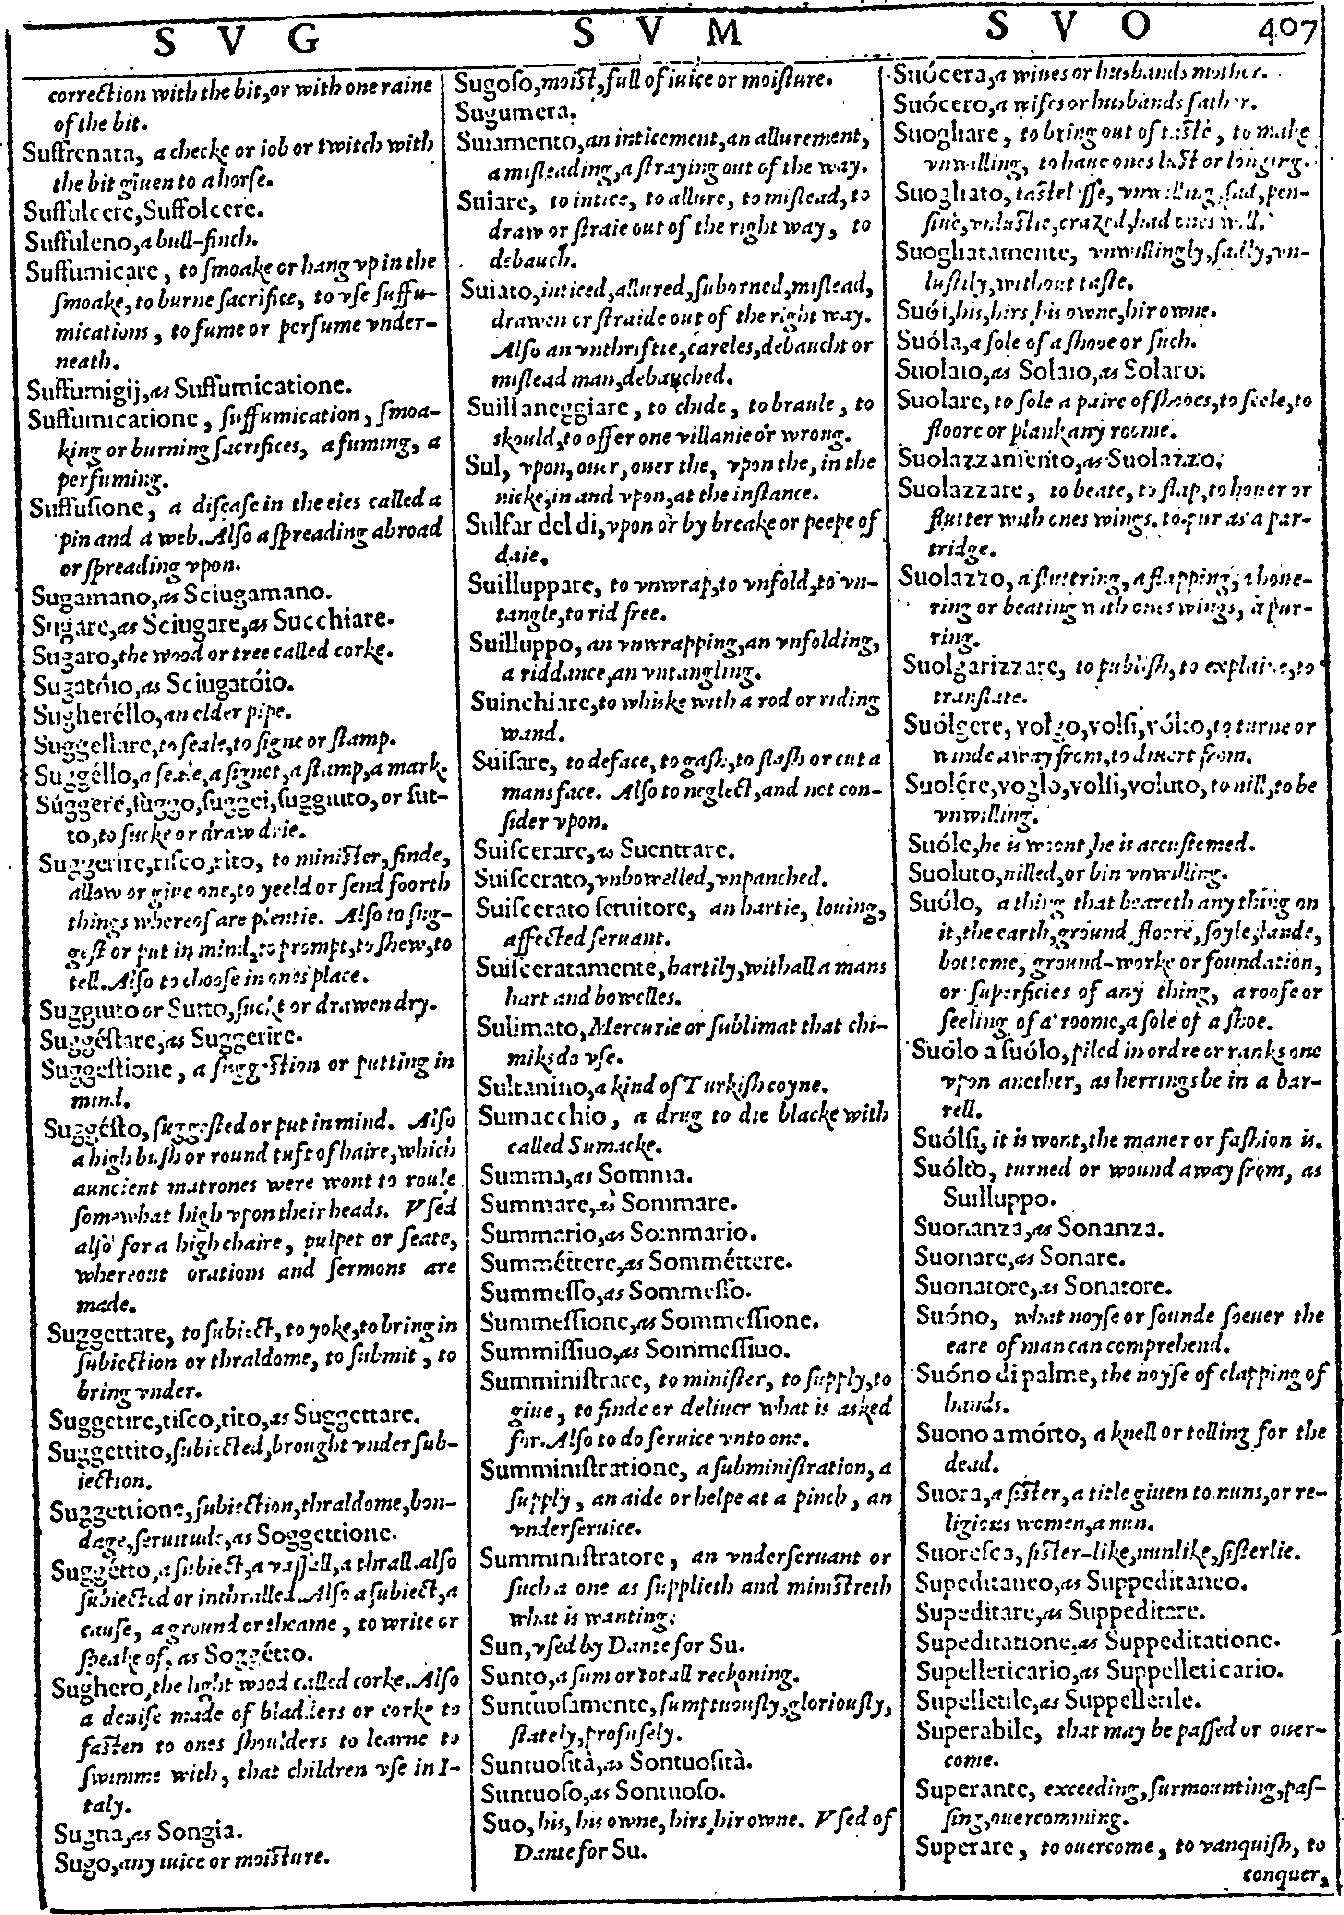 S V G
S V M
S V O
407
correction with the bit, or with one raine
of the bit.
Suffrenata, a checke or iob or twitch with
the bit giuen to a horse.
Suffulcere, Suffolcere.
Suffuleno, a bull-finch.
Suffumicare, to smoake or hang vp in the
smoake, to burne sacrifice, to vse suffu-
mications, to fume or perfume vnder-
neath.
Suffumigij, as Suffumicatione.
Suffumicatione, suffumication, smoa-
king or burning sacrifices, a fuming, a
perfuming.
Suffusione, a disease in the eies called a
pin and a web. Also a spreading abroad
or spreading vpon.
Sugamano, as Sciugamano.
Sugare, as Sciugare, as Succhiare.
Sugaro, the wood or tree called corke.
Sugatóio, as Sciugatóio.
Sugheréllo, an elder pipe.
Suggellare, to seale, to signe or stamp.
Suggéllo, a seale, a signet, a stamp, a marke
Súggere, suggo, suggei, suggiuto, or sut-
to, to sucke or draw drie.
Suggerire, risco, rito, to minister, finde,
allow or giue one, to yeeld or send foorth
things whereof are plentie. Also to sug-
gest or put in mind, to prompt, to shew, to
tell. Also to choose in ones place.
Suggiuto or Sutto, suckt or drawen dry.
Suggéstare, as Suggerire.
Suggestione, a suggestion or putting in
mind.
Suggésto, suggested or put in mind. Also
a high bush or round tuft of haire, which
auncient matrones were wont to
somewhat high vpon their heads. Vsed
also for a high chaire, pulpet or seate,
whereout orations and sermons are
made.
Suggettare, to subiect, to yoke, to bring in
subiection or thraldome, to submit, to
bring vnder.
Suggetire, tisco, tito, as Suggettare.
Suggettito, subiected, brought vnder sub-
iection.
Suggettione, subiection, thraldome, bon-
dage, seruitude, as Soggettione.
Suggétto, a subiect, a vassall, a thrall. also
subiected or inthralled. Also a subiect, a
cause, a ground or theame, to write or
speake of, as Soggétto.
Sughero, the light wood called corke. Also
a deuise made of bladders or corke to
fasten to ones shoulders to learne to
swimme with, that children vse in I-
taly.
Sugna, as Songia.
Sugo, any iuice or moisture.
Sugoso, moist, full of iuice or moisture.
Sugumera.
Suiamento, an inticement, an allurement,
a misleading, a straying out of the way.
Suiare, to intice, to allure, to mislead, to
draw or straie out of the right way, to
debauch.
Suiato, inticed, allured, suborned, mislead,
drawen or straide out of the right way.
Also an vnthriftie, careles, debaucht or
mislead man, debauched.
Suillaneggiare, to chide, to braule, to
skould, to offer one villanie or wrong.
Sul, vpon, ouer, ouer the, vpon the, in the
nicke, in and vpon, at the instance.
Sulfar del di, vpon or by breake or peepe of
daie.
Suilluppare, to vnwrap, to vnfold, to vn-
tangle, to rid free.
Suilluppo, an vnwrapping, an vnfolding,
a riddance, an vntangling.
Suinchiare, to whiske with a rod or riding
wand.
Suisare, to deface, to gash, to slash or cut a
mans face. Also to neglect, and not con-
sider vpon.
Suiscerare, as Suentrare.
Suiscerato, vnbowelled, vnpanched.
Suiscerato seruitore, an hartie, louing,
affected seruant.
Suisceratamente, hartily, with all a mans
hart and bowelles.
Sulimato, Mercurie or sublimat that chi-
miks do vse.
Sultanino, a kind of Turkish coyne.
Sumacchio, a drug to die blacke with
called Sumacke.
Summa, as Somma.
Summare, as Sommare.
Summario, as Sommario.
Summéttere, as Somméttere.
Summesso, as Sommesso.
Summessione, as Sommessione.
Summissiuo, as Sommessiuo.
Sumministrare, to minister, to supply, to
giue, to finde or deliuer what is asked
for. Also to do seruice vnto one.
Sumministratione, a subministration, a
supply, an aide or helpe at a pinch, an
vnderseruice.
Sumministratore, an vnderseruant or
such a one as supplieth and ministreth
what is wanting.
Sun, vsed by Dante for Su.
Sunto, a sum or totall reckoning.
Suntuosamente, sumptuously, gloriously,
stately, profusely.
Suntuosità, as Sontuosità.
Suntuoso, as Sontuoso.
Suo, his, his owne, hirs, hir owne. Vsed of
Dante for Su.
Suócera, a wiues or husbands mother.
Suócero, a wifes or husbands father.
Suogliare, to bring out of taste, to make
vnwilling, to haue ones last or longing.
Suogliato, tastelesse, vnwilling, sad, pen-
siue, vnlustie, crazed, had ones will.
Suogliatamente, vnwillingly, sadly, vn-
lustily, without taste.
Suói, his, hirs, his owne, hir owne.
Suóla, a sole of a shooe or such.
Suolaio, as Solaio, as Solaro.
Suolare, to sole a paire of shooes, to seele, to
floore or plank any roome.
Suolazzamento, as Suolazzo.
Suolazzare, to beate, to flap, to houer or
flutter with ones wings. to pur as a par-
tridge.
Suolazzo, a fluttring, a flapping, a houe-
ring or beating with ones wings, a pur-
ring.
Suolgarizzare, to publish, to explaine, to
translate.
Suólgere, volgo, volsi, vólto, to turne or
winde away from, to diuert from.
Suolére, voglo, volli, voluto, to nill, to be
vnwilling.
Suóle, he is woont, he is accustomed.
Suoluto, nilled, or bin vnwilling.
Suólo, a thing that beareth any thing on
it, the earth, ground, floore, soyle, lande,
botteme, ground-worke or foundation,
or superficies of any thing, a roofe or
seeling of a roome, a sole of a shoe.
Suólo a suólo, piled in ordre or ranks one
vpon another, as herrings be in a bar-
rell.
Suólsi, it is wont, the maner or fashion is.
Suólto, turned or wound away from, as
Suilluppo.
Suonanza, as Sonanza.
Suonare, as Sonare.
Suonatore, as Sonatore.
Suóno, what noyse or sounde soeuer the
eare of man can comprehend.
Suóno di palme, the noyse of clapping of
hands.
Suono a mórto, a knell or telling for the
dead.
Suora, a sister, a title giuen to nuns, or re-
ligious women, a nun.
Suoresca, sister-like, nunlike, sisterlie.
Supeditaneo, as Suppeditaneo.
Supeditare, as Suppeditare.
Supeditatione, as Suppeditatione.
Supelleticario, as Suppelleticario.
Supelletile, as Suppelletile.
Superabile, that may be passed or ouer-
come.
Superante, exceeding, surmounting, pas-
sing, ouercomming.
Superare, to ouercome, to vanquish, to
conquer,